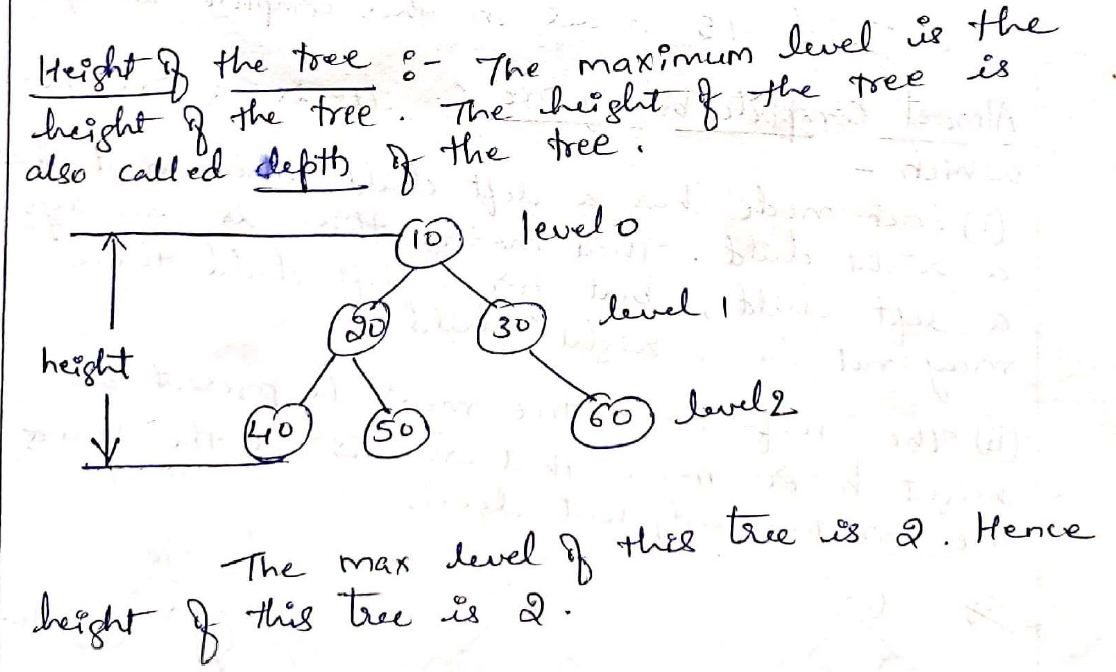 Height of the tree :- The maximum level is the
height of the tree. The height of the tree is
also called depth of the tree.
10 level 0
20 30 level 1
height
40 50 60 level 2
The max level of this tree is 2. Hence
height of this tree is 2.